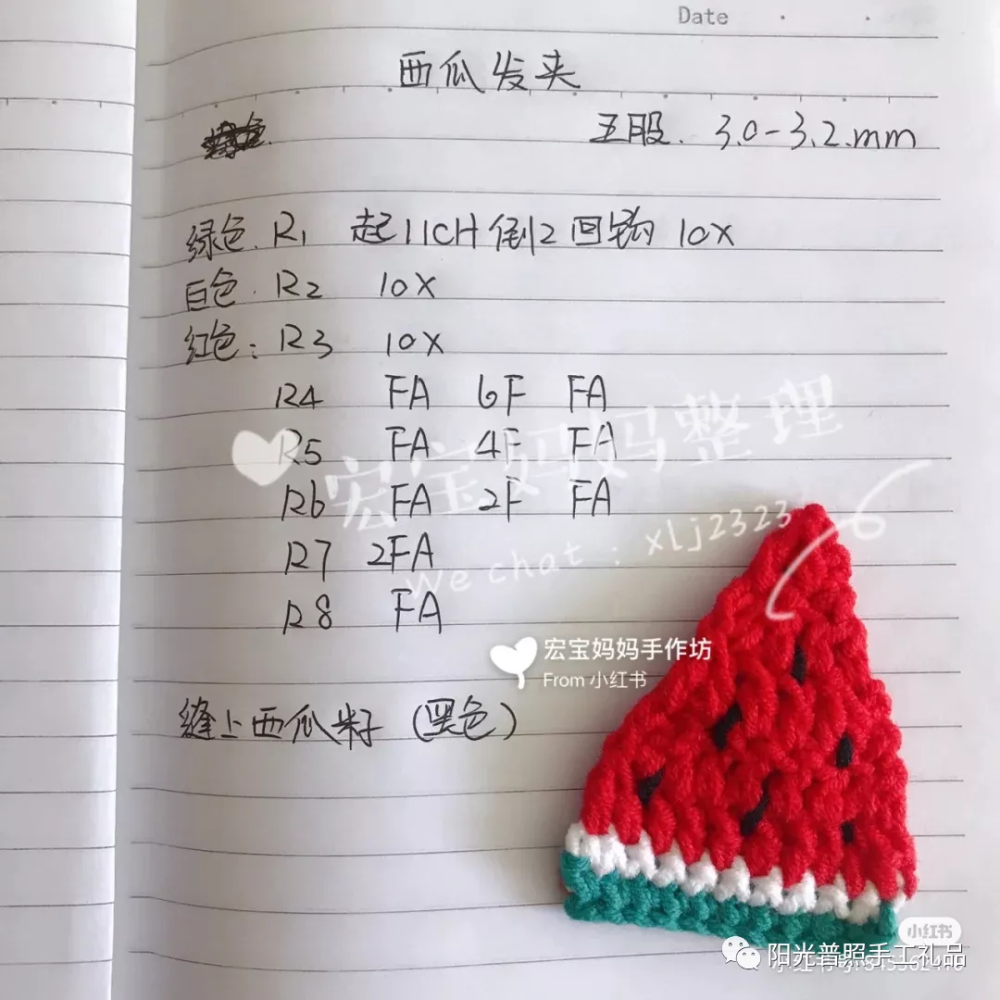 Date
西瓜发夹
五股. 3.0-3.2.mm
绿色. R1 起11CH 倒2 回钩 10X
白色. R2 10X
红色: R3 10X
R4 FA 6F FA
R5 FA 4F FA
R6 FA 2F FA
R7 2FA
R8 FA
宏宝妈妈整理
We chat : xlj2323
宏宝妈妈手作坊
From 小红书
缝上西瓜籽 (黑色)
小红书
阳光普照手工礼品